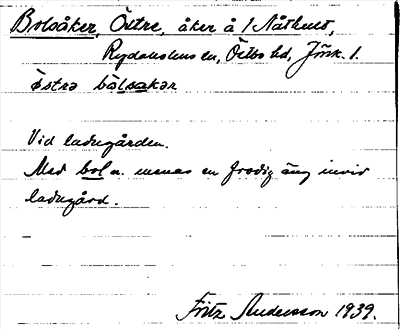 Bolsåker, Östre, åker å 1 Nåthult,
Rydaholms sn, Östbo hd, Jönk. l.
östrə bòlsakər
Vid ladugården.
Med bol a. menas en frodig äng invid
ladugård.
Fritz Andersson 1939.